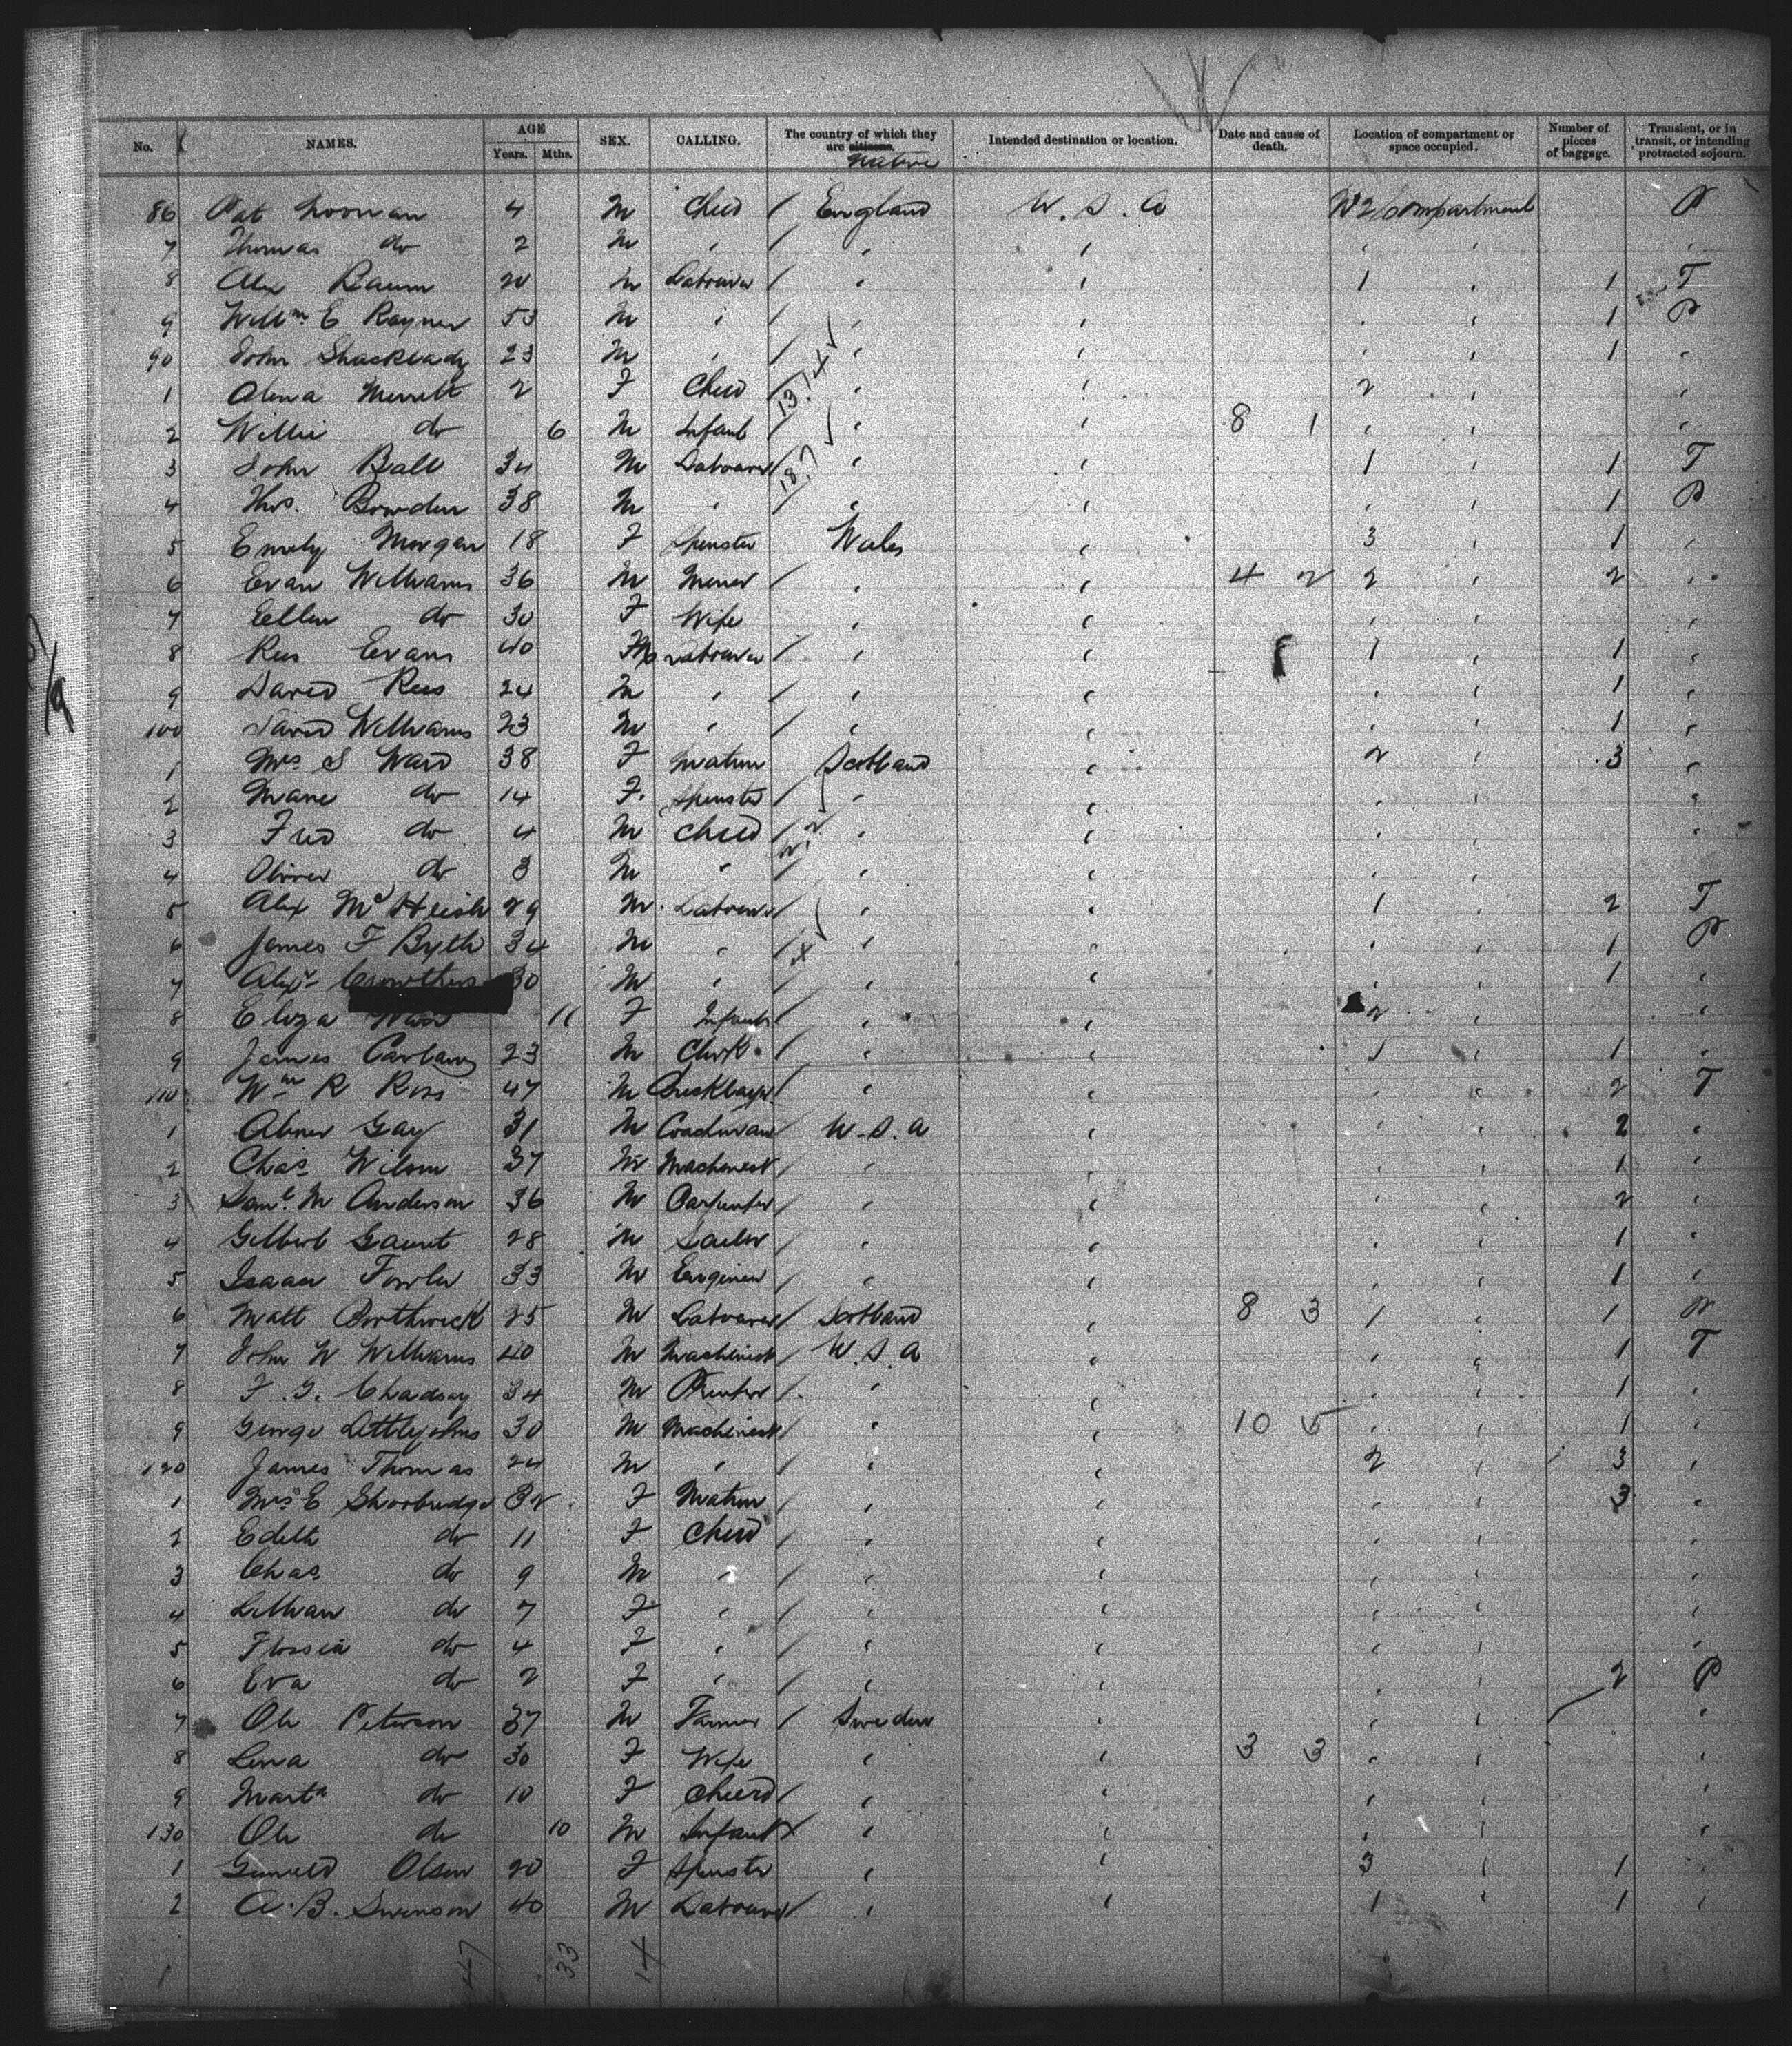 No. NAMES. AGE Years. Mths. SEX. CALLING. The country of which they are citizens. Native Intended destination or location. Date and cause of death. Location of compartment or space occupied. Number of pieces of baggage. Transient, or in transit, or intending protracted sojourn.
86 Pat Noonan 4 M Child / England U.S.A No 2 Compartment P
7 Thomas do 2 M " / " " " " "
8 Alex Baum 20 M Labourer / " " 1 " 1 T
9 Willm E Rayner 53 M " / " " " " 1 P
90 John Shacklady 23 M " / " " " " 1 "
1 Alma Merrett 2 F Child / " " 2 " "
2 Willie do 6 M Infant / " " 8 1 " " "
3 John Ball 34 M Labourer / " " 1 " 1 T
4 Thos. Bowden 38 M " / " " " " 1 P
5 Emily Morgan 18 F Spinster Wales " 3 " 1 "
6 Evan Williams 36 M Miner / " " 4 2 2 " 2 "
7 Ellen do 30 F Wife " " " " "
8 Rees Evans 40 M Labourer / " " 1 " 1 "
9 David Rees 24 M " / " " " " 1 "
100 David Williams 23 M " / " " " " 1 "
1 Mrs S Ward 38 F Matron Scotland " 2 " 3 "
2 Marie do 14 F Spinster / " " " " "
3 Fred do 4 M Child / " " " " "
4 Oliver do 3 M " / " " " "
5 Alex 29 M Labourer / " " 1 " 2 T
6 James F Byth 34 M " / " " " " 1 P
7 Alexr Crowthers 30 M " / " " " " 1 "
8 Eliza Ward 11 F Infant / " " 2 " "
9 James 23 M Clerk / " " 1 " 1 "
110 Wm R Ross 47 M Bricklayer / " " " " 2 T
1 Abner Gay 31 M Coachman / U.S.A " " " 2 "
2 Chas Wilson 37 M Machinest / " " " " 1 "
3 Saml M Anderson 36 M Carpenter / " " " " 2 "
4 Gilbert 28 M Sailor / " " " " 1 "
5 Isaac Fowler 33 M Engineer / " " " " 1 "
6 Matt Borthwick 25 M Labourer / Scotland " 8 3 1 " 1 P
7 John W Williams 40 M Machinest / U.S.A " " " 1 T
8 F. G. Chadsay 34 M Printer / " " " " 1 "
9 George Littlejohns 30 M Machinest / " " 10 5 " " 1 "
120 James Thomas 24 M " / " " 2 " 3 "
1 Mrs E Shorbridge 32 F Matron / " " " " 3 "
2 Edith do 11 F Child / " " " " "
3 Chas do 9 M " / " " " " "
4 Lillian do 7 F " / " " " " "
5 Flossie do 4 F " / " " " " "
6 Eva do 2 F " / " " " " 2 P
7 Ole Peterson 37 M Farmer / Sweden " " " "
8 Lena do 30 F Wife " " 3 3 " " "
9 Marta do 10 F Child / " " " " "
130 Ole do 10 M Infant / " " " " "
1 Olsen 20 F Spinster " " 3 " 1 "
2 A. B. Swenson 40 M Labourer / " " 1 " 1 "
47 33 14